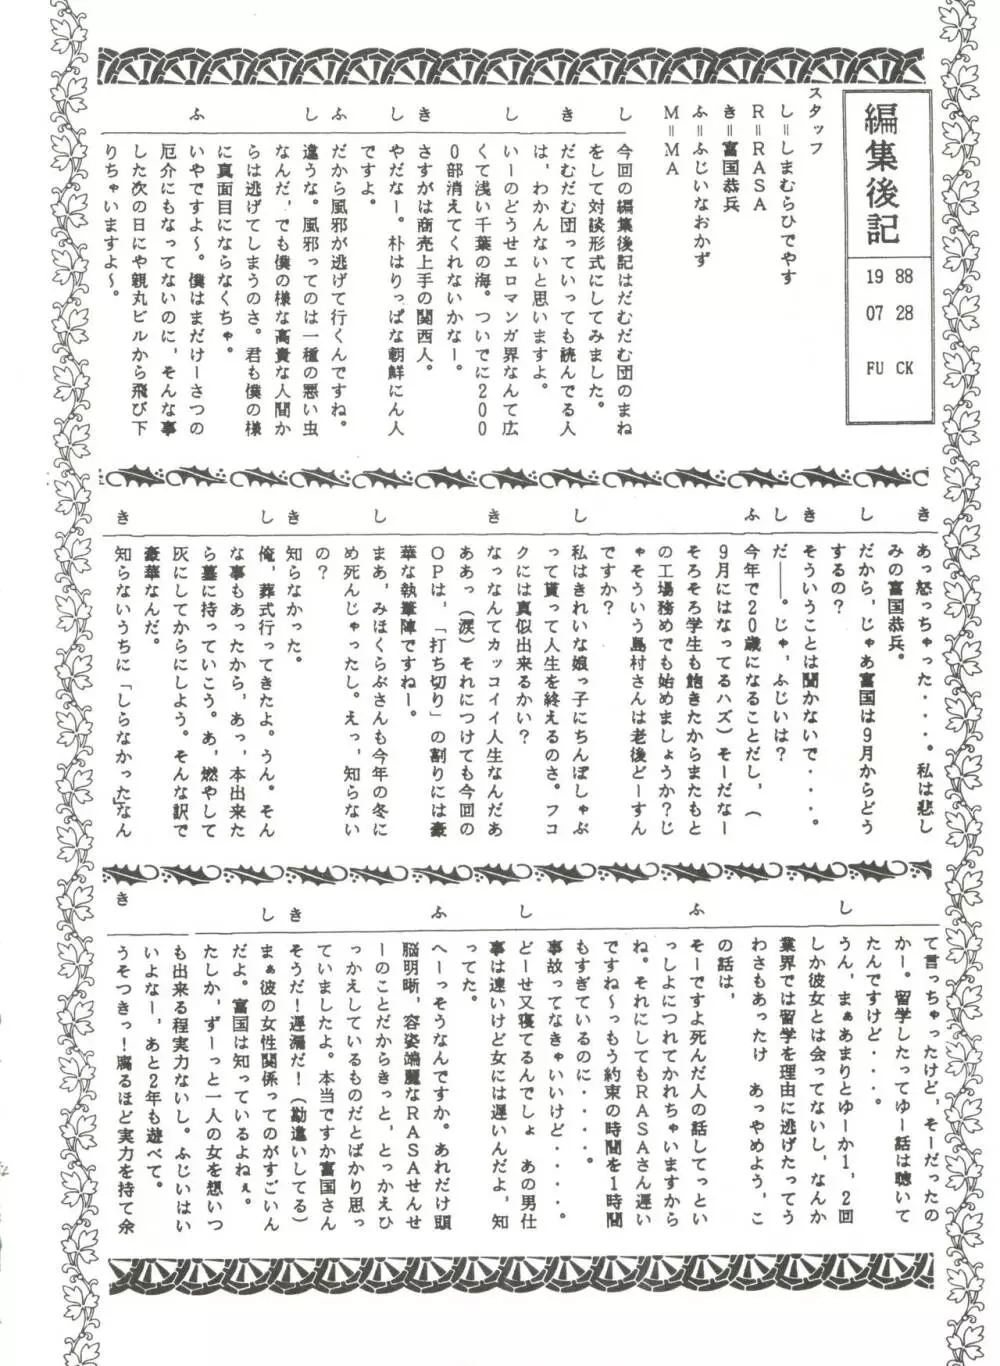 編集後記
19 88
07 28
FU CK
スタッフ
し＝しまむらひでやす
R＝RASA
き＝富国恭兵
ふ＝ふじいなおかず
M＝MA
し
今回の編集後記はだむだむ団のまね
をして対談形式にしてみました。
き
だむだむ団っていっても読んでる人
は、わかんないと思いますよ。
し
いーのどうせエロマンガ界なんて広
くて浅い千葉の海。ついでに200
0部消えてくれないかなー。
き
さすがは商売上手の関西人。
し
やだなー。朴はりっぱな朝鮮にん人
ですよ。
ふ
だから風邪が逃げて行くんですね。
し
違うな。風邪ってのは一種の悪い虫
なんだ、でも僕の様な高貴な人間か
らは逃げてしまうのさ。君も僕の様
に真面目にならなくちゃ。
ふ
いやですよ〜。僕はまだけーさつの
厄介にもなってないのに、そんな事
した次の日にや親丸ビルから飛び下
りちゃいますよ〜。
き
あっ怒っちゃった・・・・。私は悲し
みの富国恭兵。
し
だから，じゃあ富国は9月からどう
するの？
き
そういうことは聞かないで・・・・。
し
だ――。じゃ，ふじいは？
ふ
今年で20歳になることだし，（
9月にはなってるハズ）そーだなー
そろそろ学生も飽きたからまたもと
の工場務めでも始めましょうか？じ
ゃそういう島村さんは老後どーすん
ですか？
し
私はきれいな娘っ子にちんぽしゃぶ
って貰って人生を終えるのさ。フコ
クには真似出来るかい？
き
なっなんてカッコイイ人生なんだあ
ああっ（涙）それにつけても今回の
OPは，「打ち切り」の割りには豪
華な執筆陣ですねー。
し
まあ，みほくらぶさんも今年の冬に
め死んじゃったし。えっ，知らない
の？
き
知らなかった。
し
俺，葬式行ってきたよ。うん。そん
な事もあったから，あっ，本出来た
ら墓に持っていこう。あ，燃やして
灰にしてからにしよう。そんな訳で
豪華なんだ。
き
知らないうちに「しらなかった」なん
て言っちゃったけど，そーだったの
かー。留学したってゆー話は聴いて
たんですけど・・・・。
し
うん，まぁあまりとゆーか1，2回
しか彼女とは会ってないし，なんか
業界では留学を理由に逃げたってう
わさもあったけ　あっやめよう，こ
の話は，
ふ
そーですよ死んだ人の話してっとい
っしょにつれてかれちゃいますから
ね。それにしてもRASAさん遅い
ですね〜っもう約束の時間を1時間
もすぎているのに・・・・。
事故ってなきゃいいけど・・・・。
し
どーせ又寝てるんでしょ　あの男仕
事は速いけど女には遅いんだよ，知
ってた。
ふ
へーっそうなんですか。あれだけ頭
脳明晰，容姿端麗なRASAせんせ
ーのことだからきっと，とっかえひ
っかえしているものだとばかり思っ
ていましたよ。本当ですか富国さん
き
そうだ！遅漏だ！（勘違いしてる）
し
まぁ彼の女性関係ってのがすごいん
だよ。富国は知っているよねぇ。
たしか，ずーっと一人の女を想いつ
も出来る程実力ないし。ふじいはい
いよなー，あと2年も遊べて。
き
うそつきっ！腐るほど実力を持て余